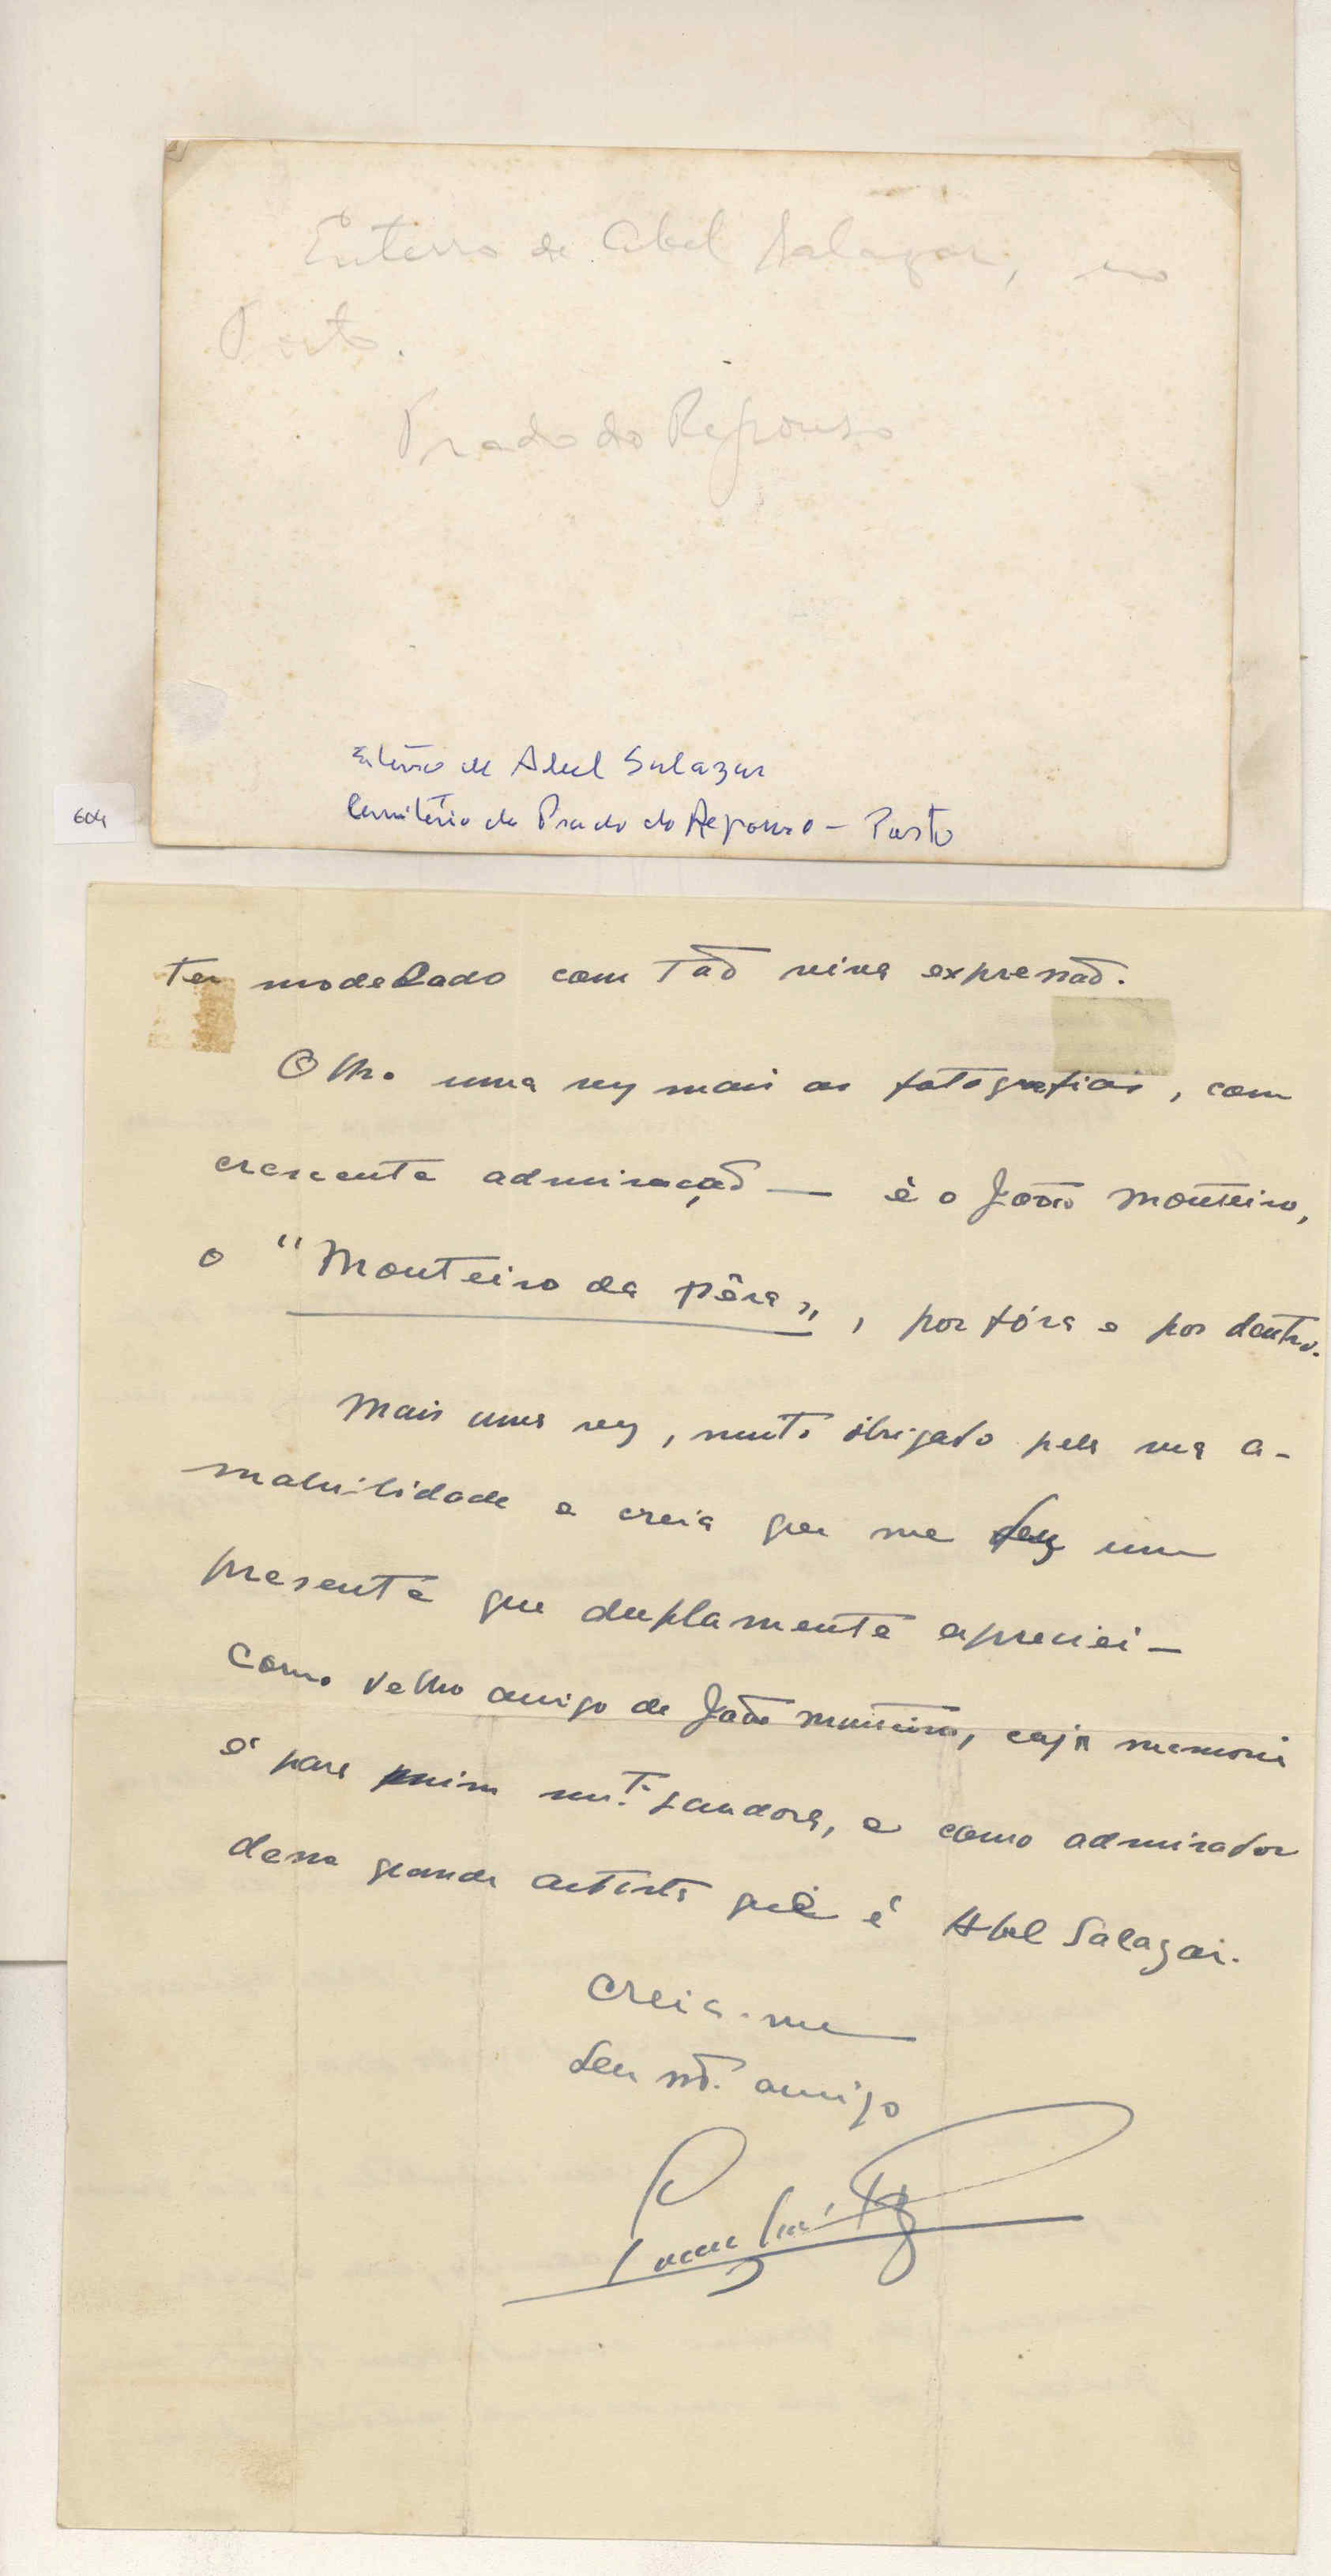 Enterro de Abel Salazar, no
Porto.
Prado do Repouso
Enterro de Abel Salazar
Cemitério do Prado do Repouso - Porto
604
ter modelado com tão viva expressão.
Olho uma vez mais as fotografias, com
crescente admiração — é o João Monteiro,
o "Monteiro da pêra", por fóra e por dentro.
Mais uma vez, muito obrigado pela sua a-
mabilidade e creia que me fez um
presente que duplamente apreciei —
como velho amigo de João Monteiro, cuja memoria
é para mim mt.º saudosa, e como admirador
desse grande artista que é Abel Salazar.
Creia-me
Seu mt.º amigo